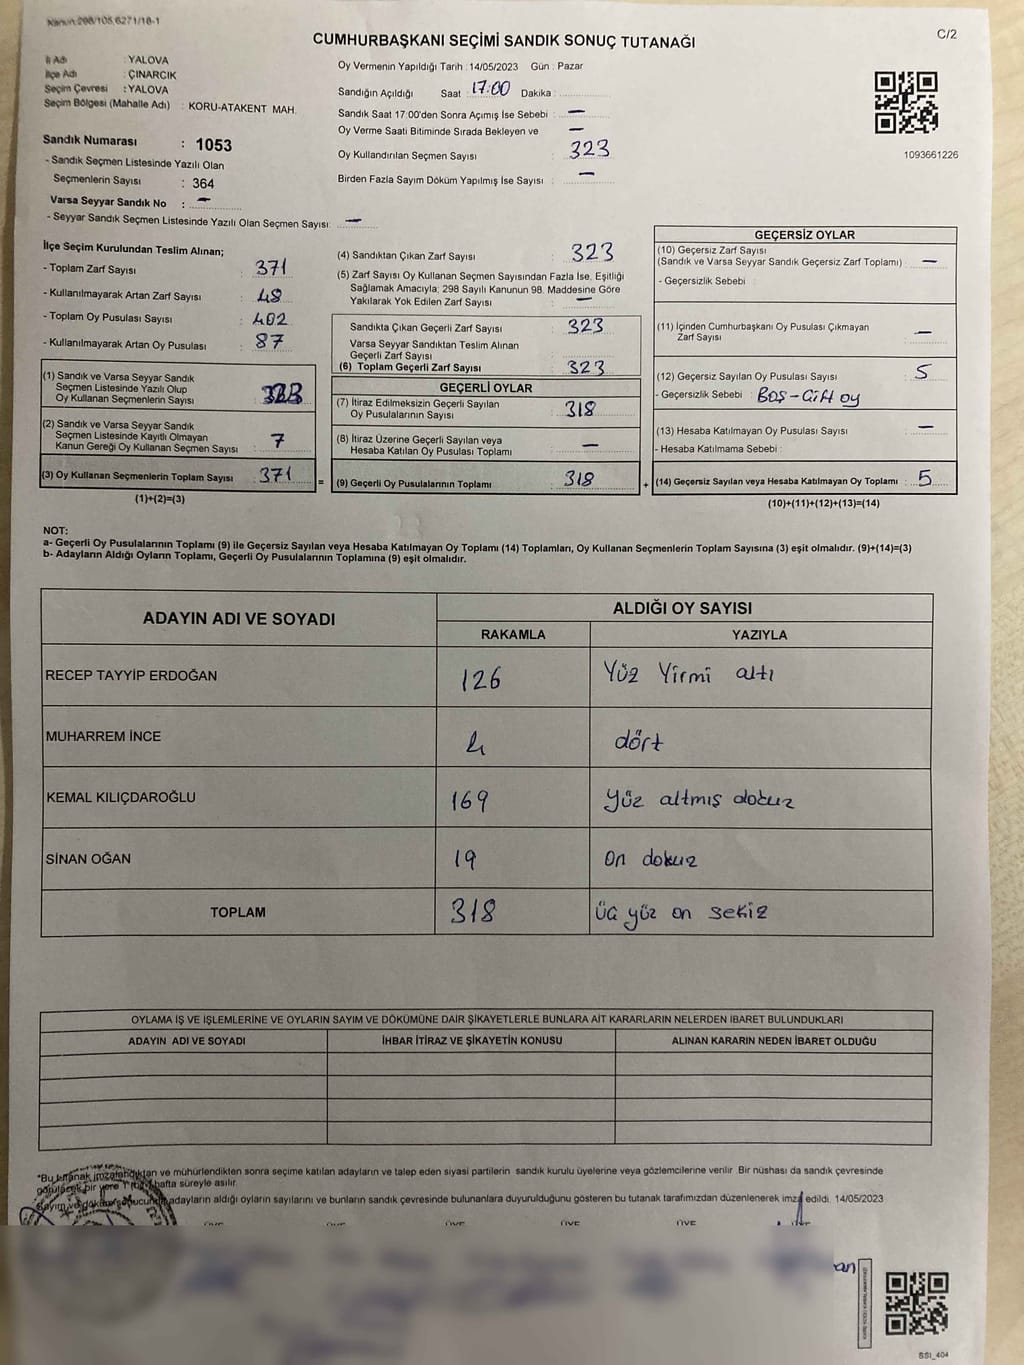 Kanun:298/105,6271/18-1
C/2
CUMHURBAŞKANI SEÇİMİ SANDIK SONUÇ TUTANAĞI
İl Adı : YALOVA
İlçe Adı : ÇINARCIK
Seçim Çevresi : YALOVA
Seçim Bölgesi (Mahalle Adı) : KORU-ATAKENT MAH.
Sandık Numarası : 1053
- Sandık Seçmen Listesinde Yazılı Olan
Seçmenlerin Sayısı : 364
Varsa Seyyar Sandık No : —
- Seyyar Sandık Seçmen Listesinde Yazılı Olan Seçmen Sayısı: —
Oy Vermenin Yapıldığı Tarih : 14/05/2023 Gün : Pazar
Sandığın Açıldığı Saat : 17:00 Dakika :
Sandık Saat 17:00'den Sonra Açımış İse Sebebi : —
Oy Verme Saati Bitiminde Sırada Bekleyen ve —
Oy Kullandırılan Seçmen Sayısı : 323
Birden Fazla Sayım Döküm Yapılmış İse Sayısı : —
1093661226
İlçe Seçim Kurulundan Teslim Alınan;
- Toplam Zarf Sayısı : 371
- Kullanılmayarak Artan Zarf Sayısı : 48
- Toplam Oy Pusulası Sayısı : 402
- Kullanılmayarak Artan Oy Pusulası : 87
(1) Sandık ve Varsa Seyyar Sandık
Seçmen Listesinde Yazılı Olup
Oy Kullanan Seçmenlerin Sayısı :
(2) Sandık ve Varsa Seyyar Sandık
Seçmen Listesinde Kayıtlı Olmayan
Kanun Gereği Oy Kullanan Seçmen Sayısı : 7
(3) Oy Kullanan Seçmenlerin Toplam Sayısı : 371
(1)+(2)=(3)
=
(4) Sandıktan Çıkan Zarf Sayısı : 323
(5) Zarf Sayısı Oy Kullanan Seçmen Sayısından Fazla İse, Eşitliği
Sağlamak Amacıyla; 298 Sayılı Kanunun 98. Maddesine Göre
Yakılarak Yok Edilen Zarf Sayısı : —
Sandıkta Çıkan Geçerli Zarf Sayısı : 323
Varsa Seyyar Sandıktan Teslim Alınan
Geçerli Zarf Sayısı :
(6) Toplam Geçerli Zarf Sayısı : 323
GEÇERLİ OYLAR
(7) İtiraz Edilmeksizin Geçerli Sayılan
Oy Pusulalarının Sayısı : 318
(8) İtiraz Üzerine Geçerli Sayılan veya
Hesaba Katılan Oy Pusulası Toplamı : —
(9) Geçerli Oy Pusulalarının Toplamı : 318
+
GEÇERSİZ OYLAR
(10) Geçersiz Zarf Sayısı
(Sandık ve Varsa Seyyar Sandık Geçersiz Zarf Toplamı) : —
- Geçersizlik Sebebi :
(11) İçinden Cumhurbaşkanı Oy Pusulası Çıkmayan
Zarf Sayısı : —
(12) Geçersiz Sayılan Oy Pusulası Sayısı : 5
- Geçersizlik Sebebi : Boş-Çift oy
(13) Hesaba Katılmayan Oy Pusulası Sayısı : —
- Hesaba Katılmama Sebebi :
(14) Geçersiz Sayılan veya Hesaba Katılmayan Oy Toplamı : 5
(10)+(11)+(12)+(13)=(14)
NOT:
a- Geçerli Oy Pusulalarının Toplamı (9) ile Geçersiz Sayılan veya Hesaba Katılmayan Oy Toplamı (14) Toplamları, Oy Kullanan Seçmenlerin Toplam Sayısına (3) eşit olmalıdır. (9)+(14)=(3)
b- Adayların Aldığı Oyların Toplamı, Geçerli Oy Pusulalarının Toplamına (9) eşit olmalıdır.
ADAYIN ADI VE SOYADI
ALDIĞI OY SAYISI
RAKAMLA YAZIYLA
RECEP TAYYİP ERDOĞAN 126 Yüz Yirmi altı
MUHARREM İNCE 4 dört
KEMAL KILIÇDAROĞLU 169 Yüz altmış dokuz
SİNAN OĞAN 19 On dokuz
TOPLAM 318 üç yüz on sekiz
OYLAMA İŞ VE İŞLEMLERİNE VE OYLARIN SAYIM VE DÖKÜMÜNE DAİR ŞİKAYETLERLE BUNLARA AİT KARARLARIN NELERDEN İBARET BULUNDUKLARI
ADAYIN ADI VE SOYADI İHBAR İTİRAZ VE ŞİKAYETİN KONUSU ALINAN KARARIN NEDEN İBARET OLDUĞU
*Bu tutanak imzalandıktan ve mühürlendikten sonra seçime katılan adayların ve talep eden siyasi partilerin sandık kurulu üyelerine veya gözlemcilerine verilir. Bir nüshası da sandık çevresinde
görülecek bir yere 1 hafta süreyle asılır.
Sayım ve döküm sonucunda adayların aldığı oyların sayılarını ve bunların sandık çevresinde bulunanlara duyurulduğunu gösteren bu tutanak tarafımızdan düzenlenerek imza edildi. 14/05/2023
ÜYE ÜYE ÜYE ÜYE ÜYE
SSI_404